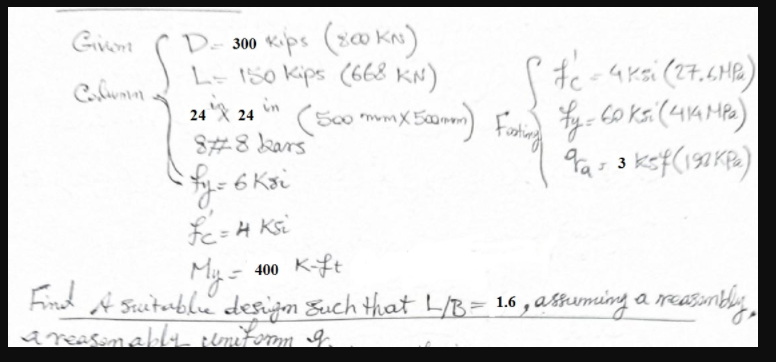 Given D = 300 kips (800 KN)
L = 150 kips (668 KN)
Column 24 in X 24 in (500 mm X 500 mm)
8#8 bars
fy = 6 Ksi
f'c = 4 Ksi
My = 400 K-ft
Footing f'c = 4 Ksi (27.6 MPa)
fy = 60 Ksi (414 MPa)
qa = 3 Ksf (192 KPa)
Find A suitable design such that L/B = 1.6, assuming a reasonably,
a reasonably uniform q.